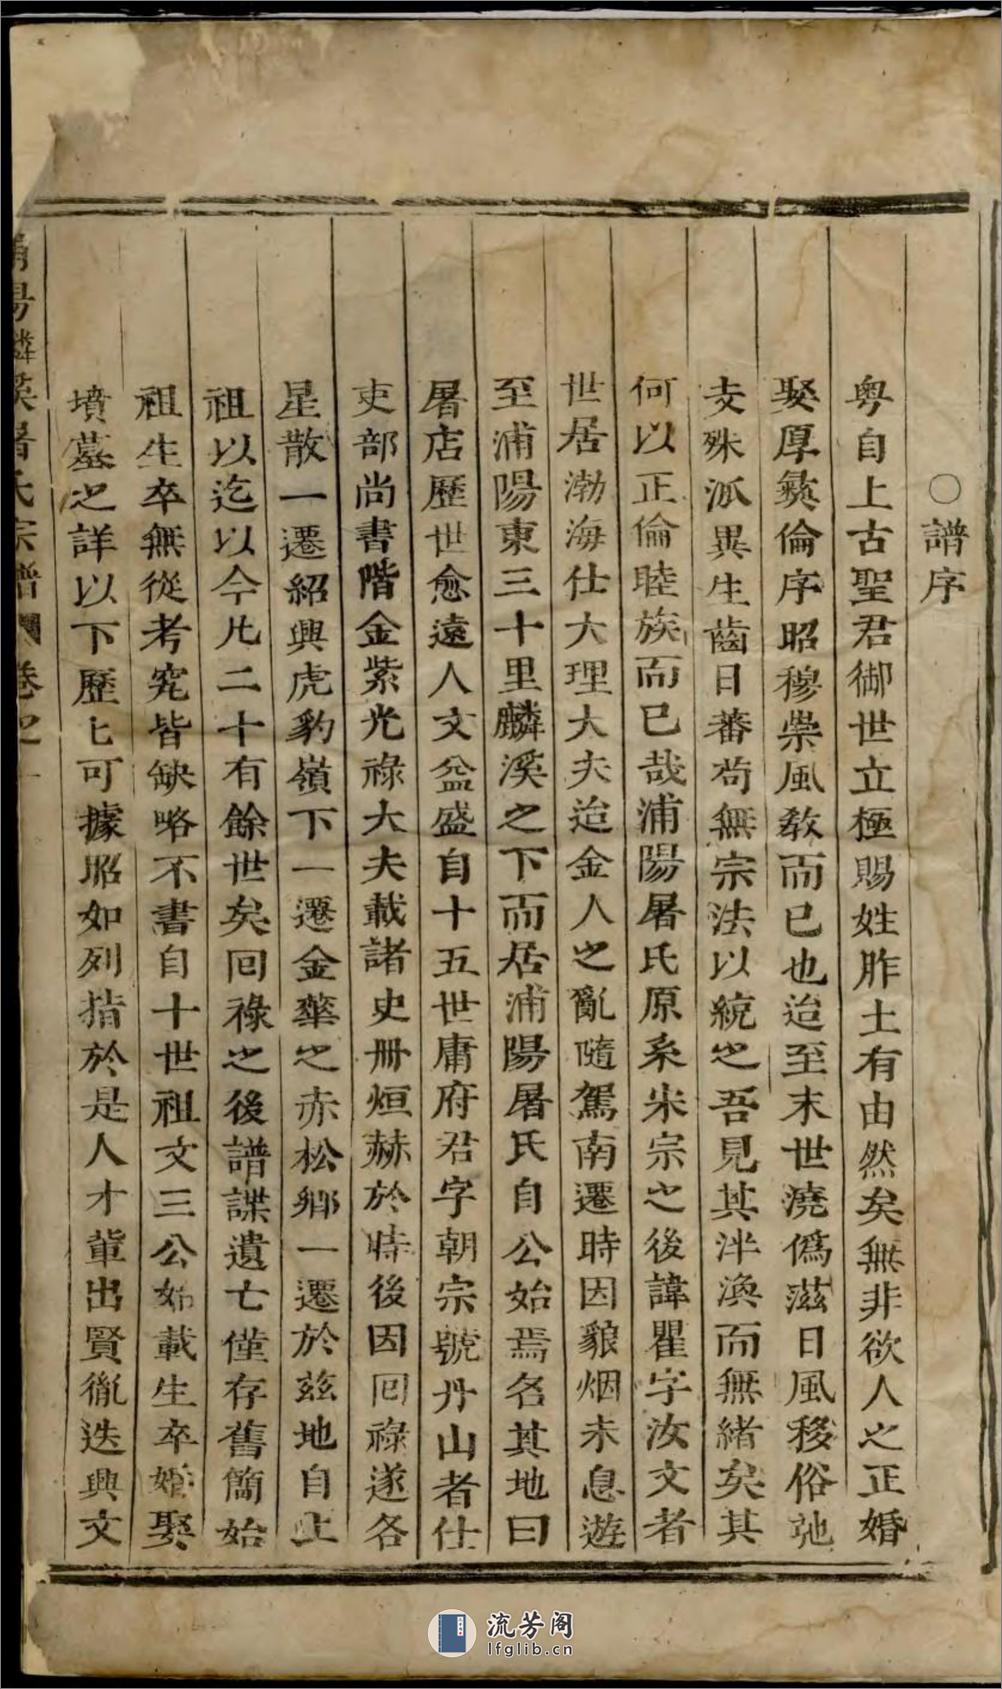 ○譜序
粤自上古聖君御世立極賜姓胙土有由然矣無非欲人之正婚
娶厚彝倫序昭穆崇風敎而已也迨至末世澆僞滋日風移俗訛
支殊派異生齒日蕃苟無宗法以統之吾見其泮渙而無緒矣其
何以正倫睦族而已哉浦陽屠氏原系宋宗之後諱瞿字汝文者
世居渤海仕大理大夫迨金人之亂隨駕南遷時因貌烟未息遊
至浦陽東三十里麟溪之下而居浦陽屠氏自公始焉名其地曰
屠店歷世愈遠人文益盛自十五世庸府君字朝宗號丹山者仕
吏部尚書階金紫光祿大夫載諸史册烜赫於時後因回祿遂各
星散一遷紹興虎豹嶺下一遷金華之赤松鄉一遷於兹地自上
祖以迄以今凡二十有餘世矣回祿之後譜諜遺亡僅存舊簡始
祖生卒無從考究皆缺略不書自十世祖文三公始載生卒婚娶
墳墓之詳以下歷七可據昭如列指於是人才軰出賢胤迭興文
陽麟溪屠氏宗譜 卷之一
流芳阁
lfglib.cn